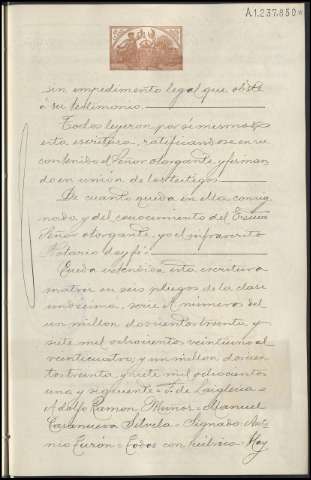 A1.237,850*
sin impedimento legal que obste
á su testimonio.
Todos leyeron por sí mismos
esta escritura, ratificandose en su
contenido el Señor otorgante y firman
do en unión de los testigos.
De cuanto queda en ella consig
nado, y del conocimiento del Excmo
Señor otorgante, yo el infrascrito
Notario doy fé.
Queda extendida esta escritura
matriz en seis pliegos de la clase
undécima, serie A números del
un millon doscientos treinta y
siete mil ochocientos veintiuno al
veinticuatro, y un millon doscien
tos treinta y siete mil ochocientos
una y siguiente = F. de Laiglesia =
Adolfo Ramon Muñoz = Manuel
Casanueva Silvela = Signado: Anto
nio Turón = Todos con rúbrica = Hay